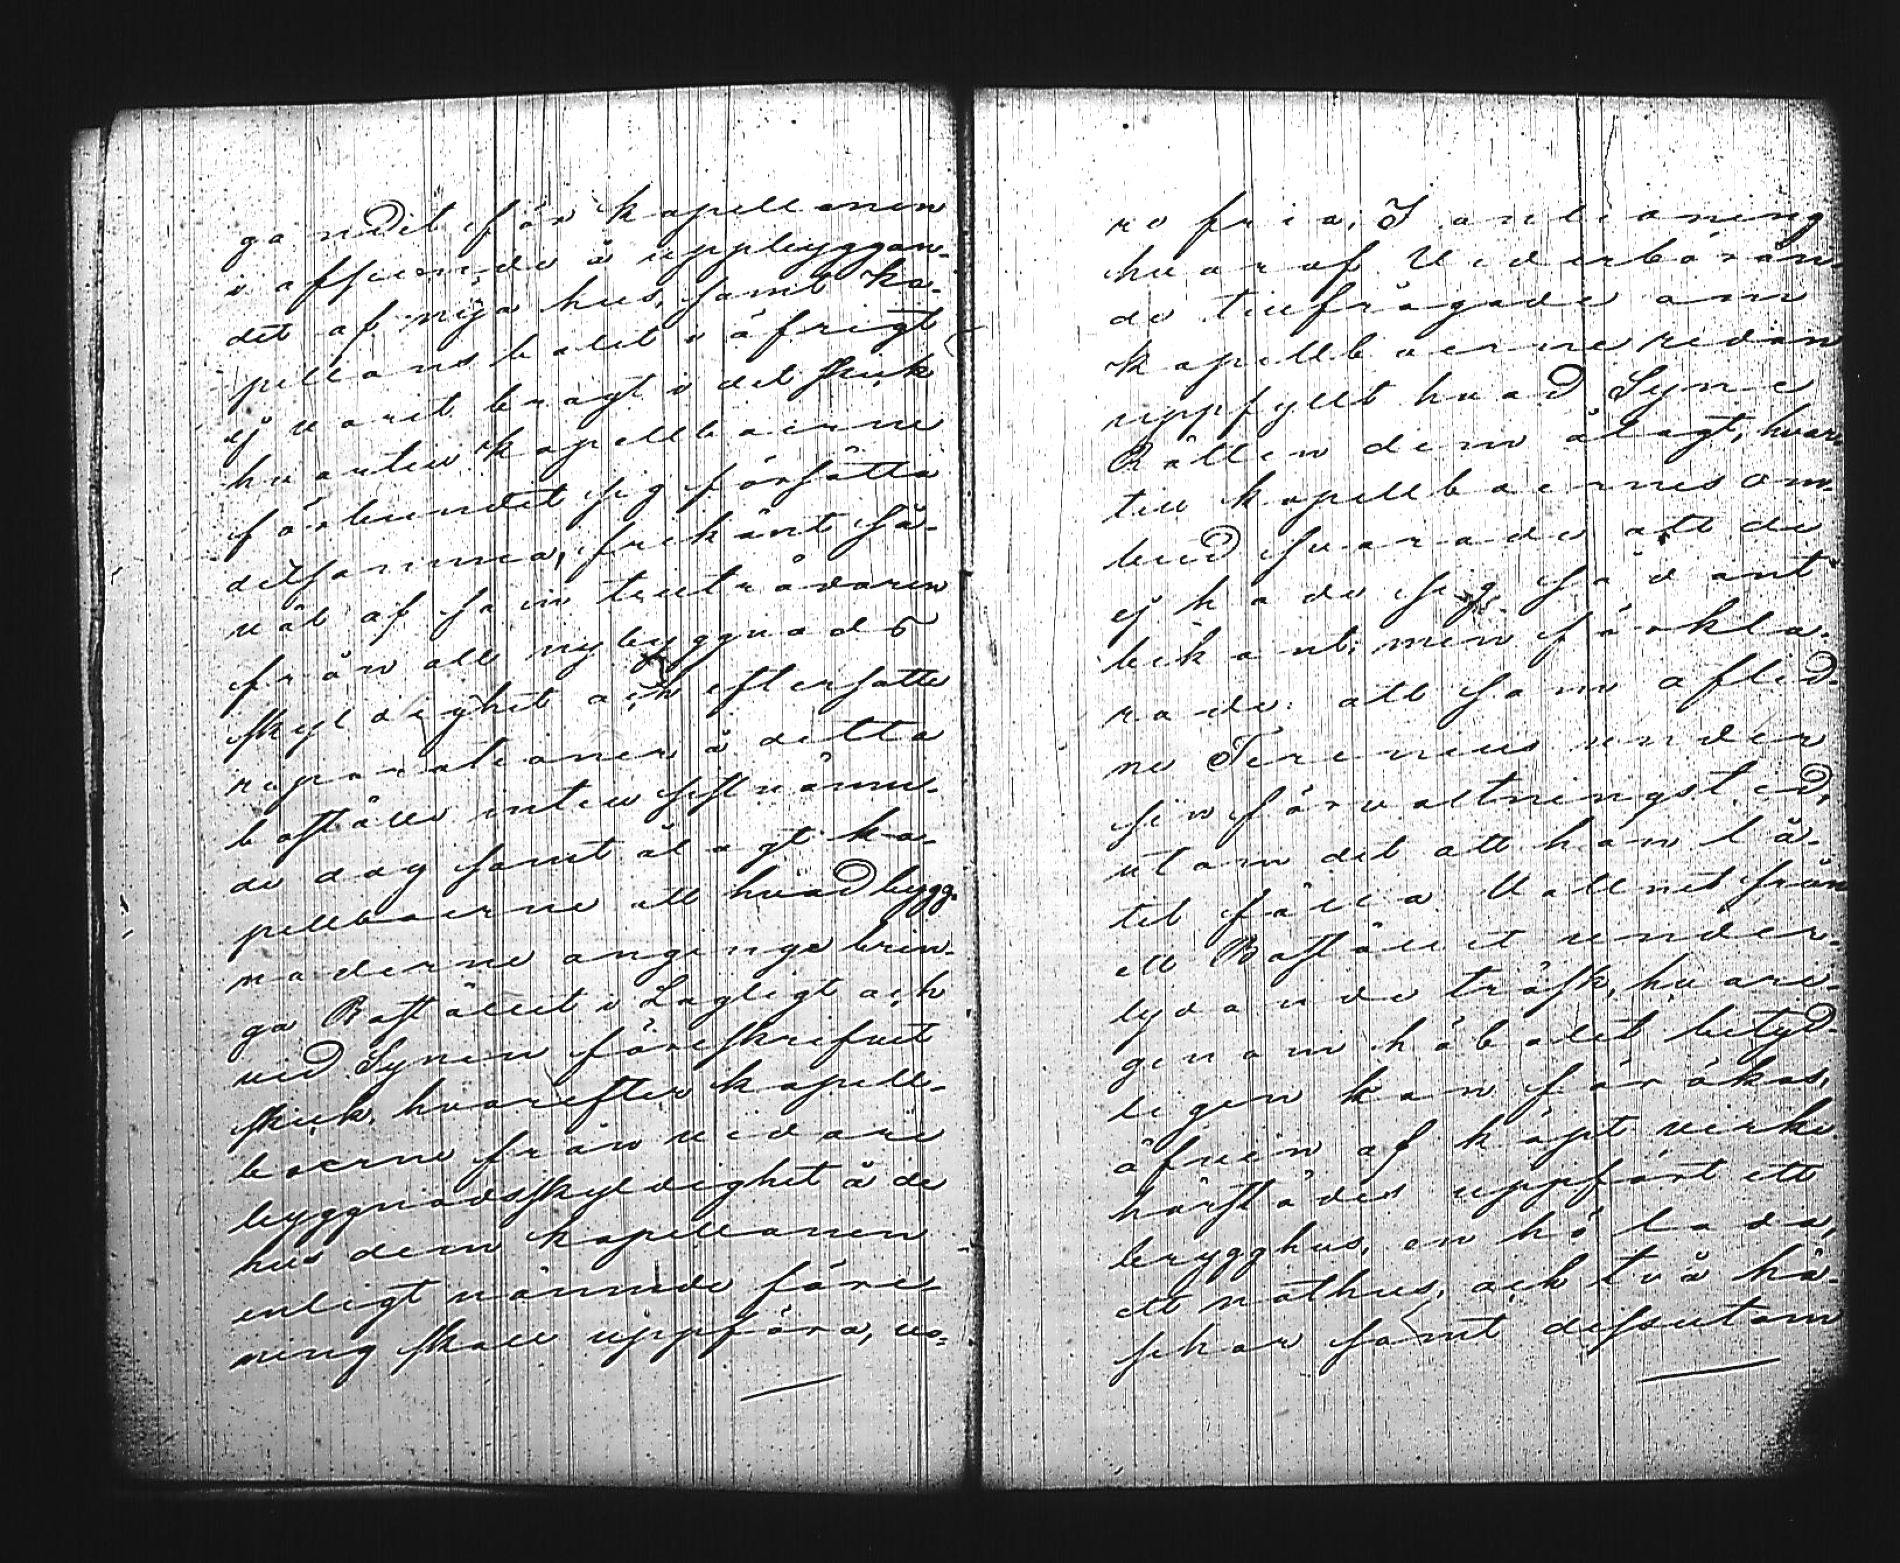 ga nedit för kapellanen
i afseende å uppbyggan-
det af nya hus, samt ka-
pellansbolet i öfrigt
ej varit bragt i det skick
hvartill kapellboerne
förbundit sig försätta
detsamma, frikänt så-
väl af som tillträdaren
från all nybyggnads
skyldighet och eftersatte
reparationer å detta
boställe intill sistnämn-
de dag samt ålagt ka-
pellboerne att hvad bygg-
naderne anginge brin-
ga Bostället i Lagligt och
vid Synen föreskrifvet
skick, hvarefter kapell-
boerne från vidare
byggnadsskyldighet å de
hus dem kapellanen
enligt nämnde före-
ning skall uppföra, vo-
ro fria. I anledning
hvaraf Vederböran-
de tillfrågade om
Kapellboerne redan
uppfyllt hvad Syne
Rätten dem ålagt, hvar-
till kapellboernes om-
bud svarade att de
ej hade sig sådant
bekant, men förkla-
rade att som aflid-
ne Terenius under
sin förvaltningstid,
utom det att han lå-
tit fälla Vattnet från
ett Bostället under-
lydande träsk, hvari-
genom höbolet betyd-
ligen kan förökas,
äfven af köpt virke
härstädes uppfört ett
brygghus, en hölada,
ett nothus, och två hä-
schar samt dessutom